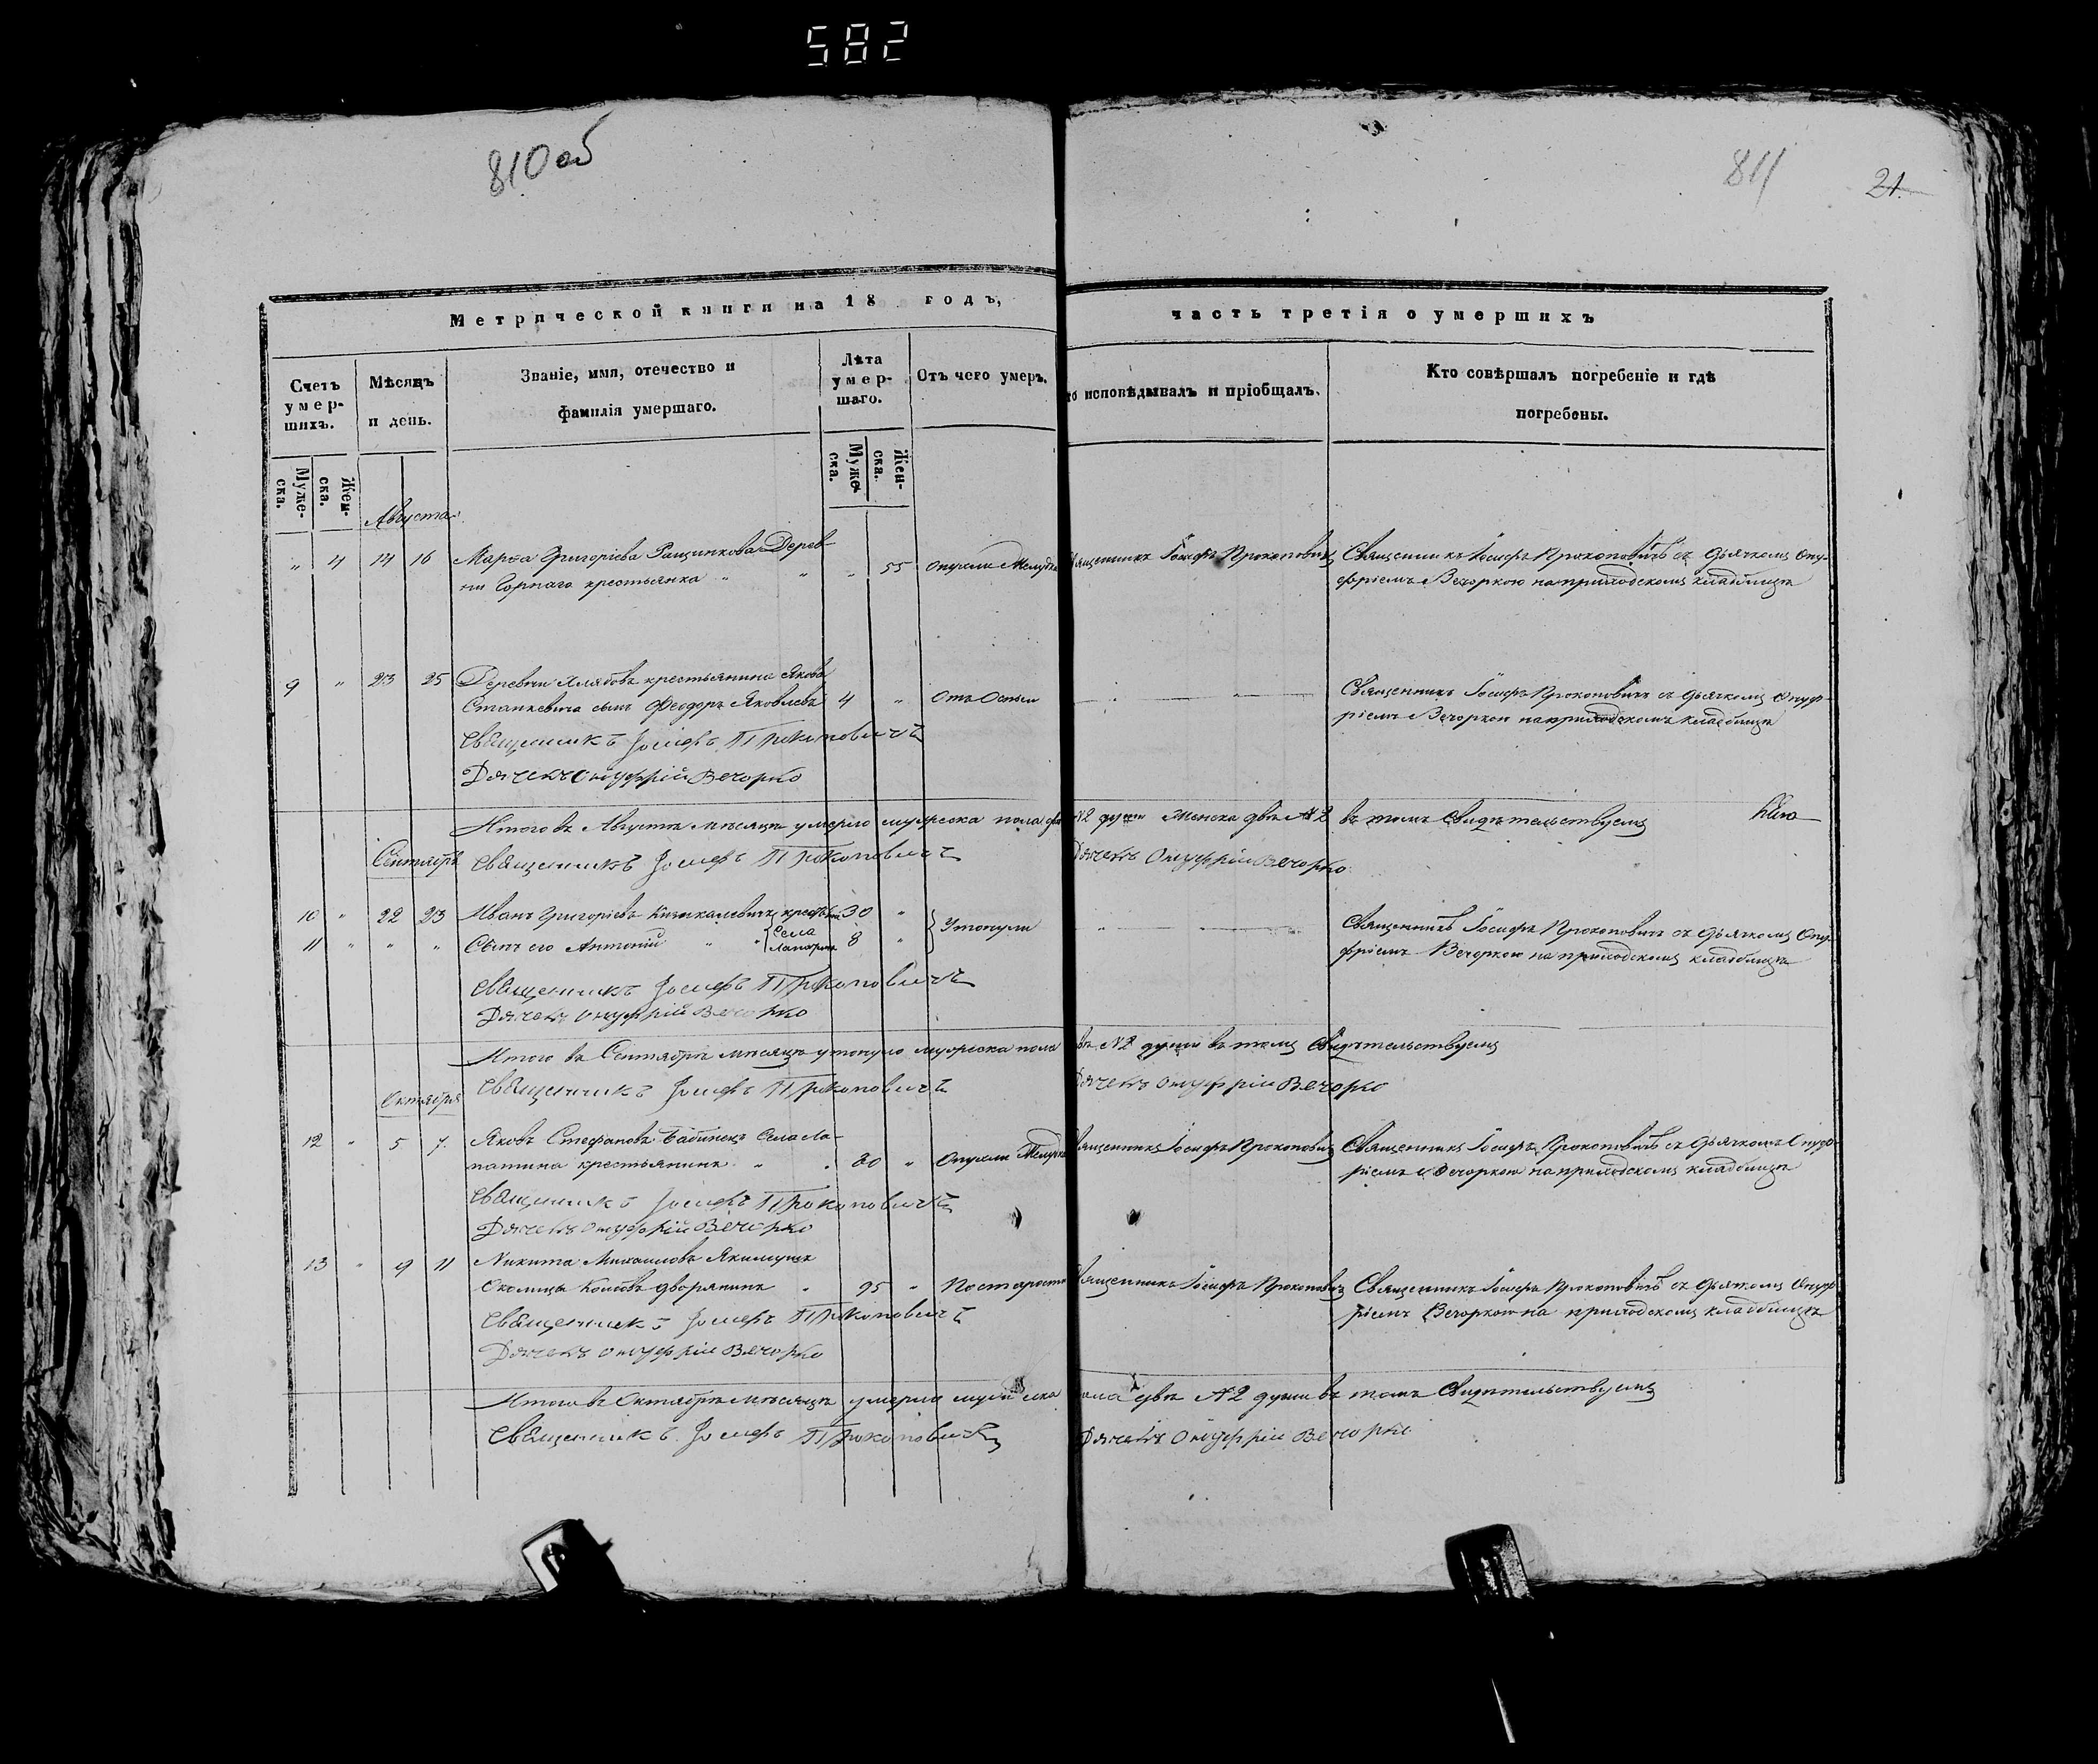 582
810 об
811
21.
Метрической книги на 18 годъ,
часть третія о умершихъ
Счетъ умер-шихъ.
Мѣсяцъ и день.
Званіе, имя, отечество и фамилія умершаго.
Лѣта умер-шаго.
Отъ чего умеръ.
то исповѣдывалъ и пріобщалъ.
Кто совѣршалъ погребеніе и гдѣ погребены.
Муже-ска.
Жен-ска.
Муже-ска.
Жен-ска.
Августа
" 4 14 16 Марѳа Григоріева Ращинкова Дерев- " 55 Опухли Желудка вященникъ Іосифъ Прокоповичъ Священникъ Іосифъ Прокоповичъ съ дьячкомъ Ону-
ни Горнаго крестьянка " " фріемъ Вечоркою на приходскомъ кладбищѣ
9 " 23 25 Деревни Хлябовъ крестьянина Якова
Станкевича сынъ Ѳеодоръ Яковлевъ 4 " Отъ Оспы Священникъ Іосифъ Прокоповичъ съ дьячкомъ Онуф-
ріемъ Вечоркою на приходскомъ кладбищѣ
Священникъ Іосифъ Прокоповичъ
Дячекъ Онуфрій Вечорко
Итого въ Августѣ мѣсяцѣ умерло мужеска пола №2 души Женска двѣ №2 въ томъ свидѣтельствуемъ
Сентября Священникъ Іосифъ Прокоповичъ Дячекъ Онуфрій Вечорко
10 " 22 23 Иванъ Григоріевъ крестьян 30 "
11 " " " Сынъ его Антоній " " Села 8 " Утонули Священникъ Іосифъ Прокоповичъ съ дьячкомъ Ону-
фріемъ Вечоркою на приходскомъ кладбищѣ
Священникъ Іосифъ Прокоповичъ
Дячекъ Онуфрій Вечорко
Итого въ Сентябрѣ мѣсяцѣ утонуло мужеска пола вѣ №2 души въ томъ свидѣтельствуемъ
Октября Священникъ Іосифъ Прокоповичъ Дячекъ Онуфрій Вечорко
12 " 5 7. Яковъ Стефановъ Бабинецъ Села Ла-
патина крестьянинъ " 20 " Опухли Желудка вященникъ Іосифъ Прокоповичъ Священникъ Іосифъ Прокоповичъ съ дьячкомъ Онуф-
ріемъ Вечоркою на приходскомъ кладбищѣ
Священникъ Іосифъ Прокоповичъ
Дячекъ Онуфрій Вечорко
13 " 9 11 Никита Михаиловъ Якимушъ
Околицы дворянинъ " 95 " По старости вященникъ Іосифъ Прокоповичъ Священникъ Іосифъ Прокоповичъ съ дьячкомъ Онуф-
ріемъ Вечоркою на приходскомъ кладбищѣ
Священникъ Іосифъ Прокоповичъ
Дячекъ Онуфрій Вечорко
Итого въ Октябрѣ мѣсяцѣ умерло мужеска ола двѣ №2 души въ томъ свидѣтельствуемъ
Священникъ Іосифъ Прокоповичъ Дячекъ Онуфрій Вечорко